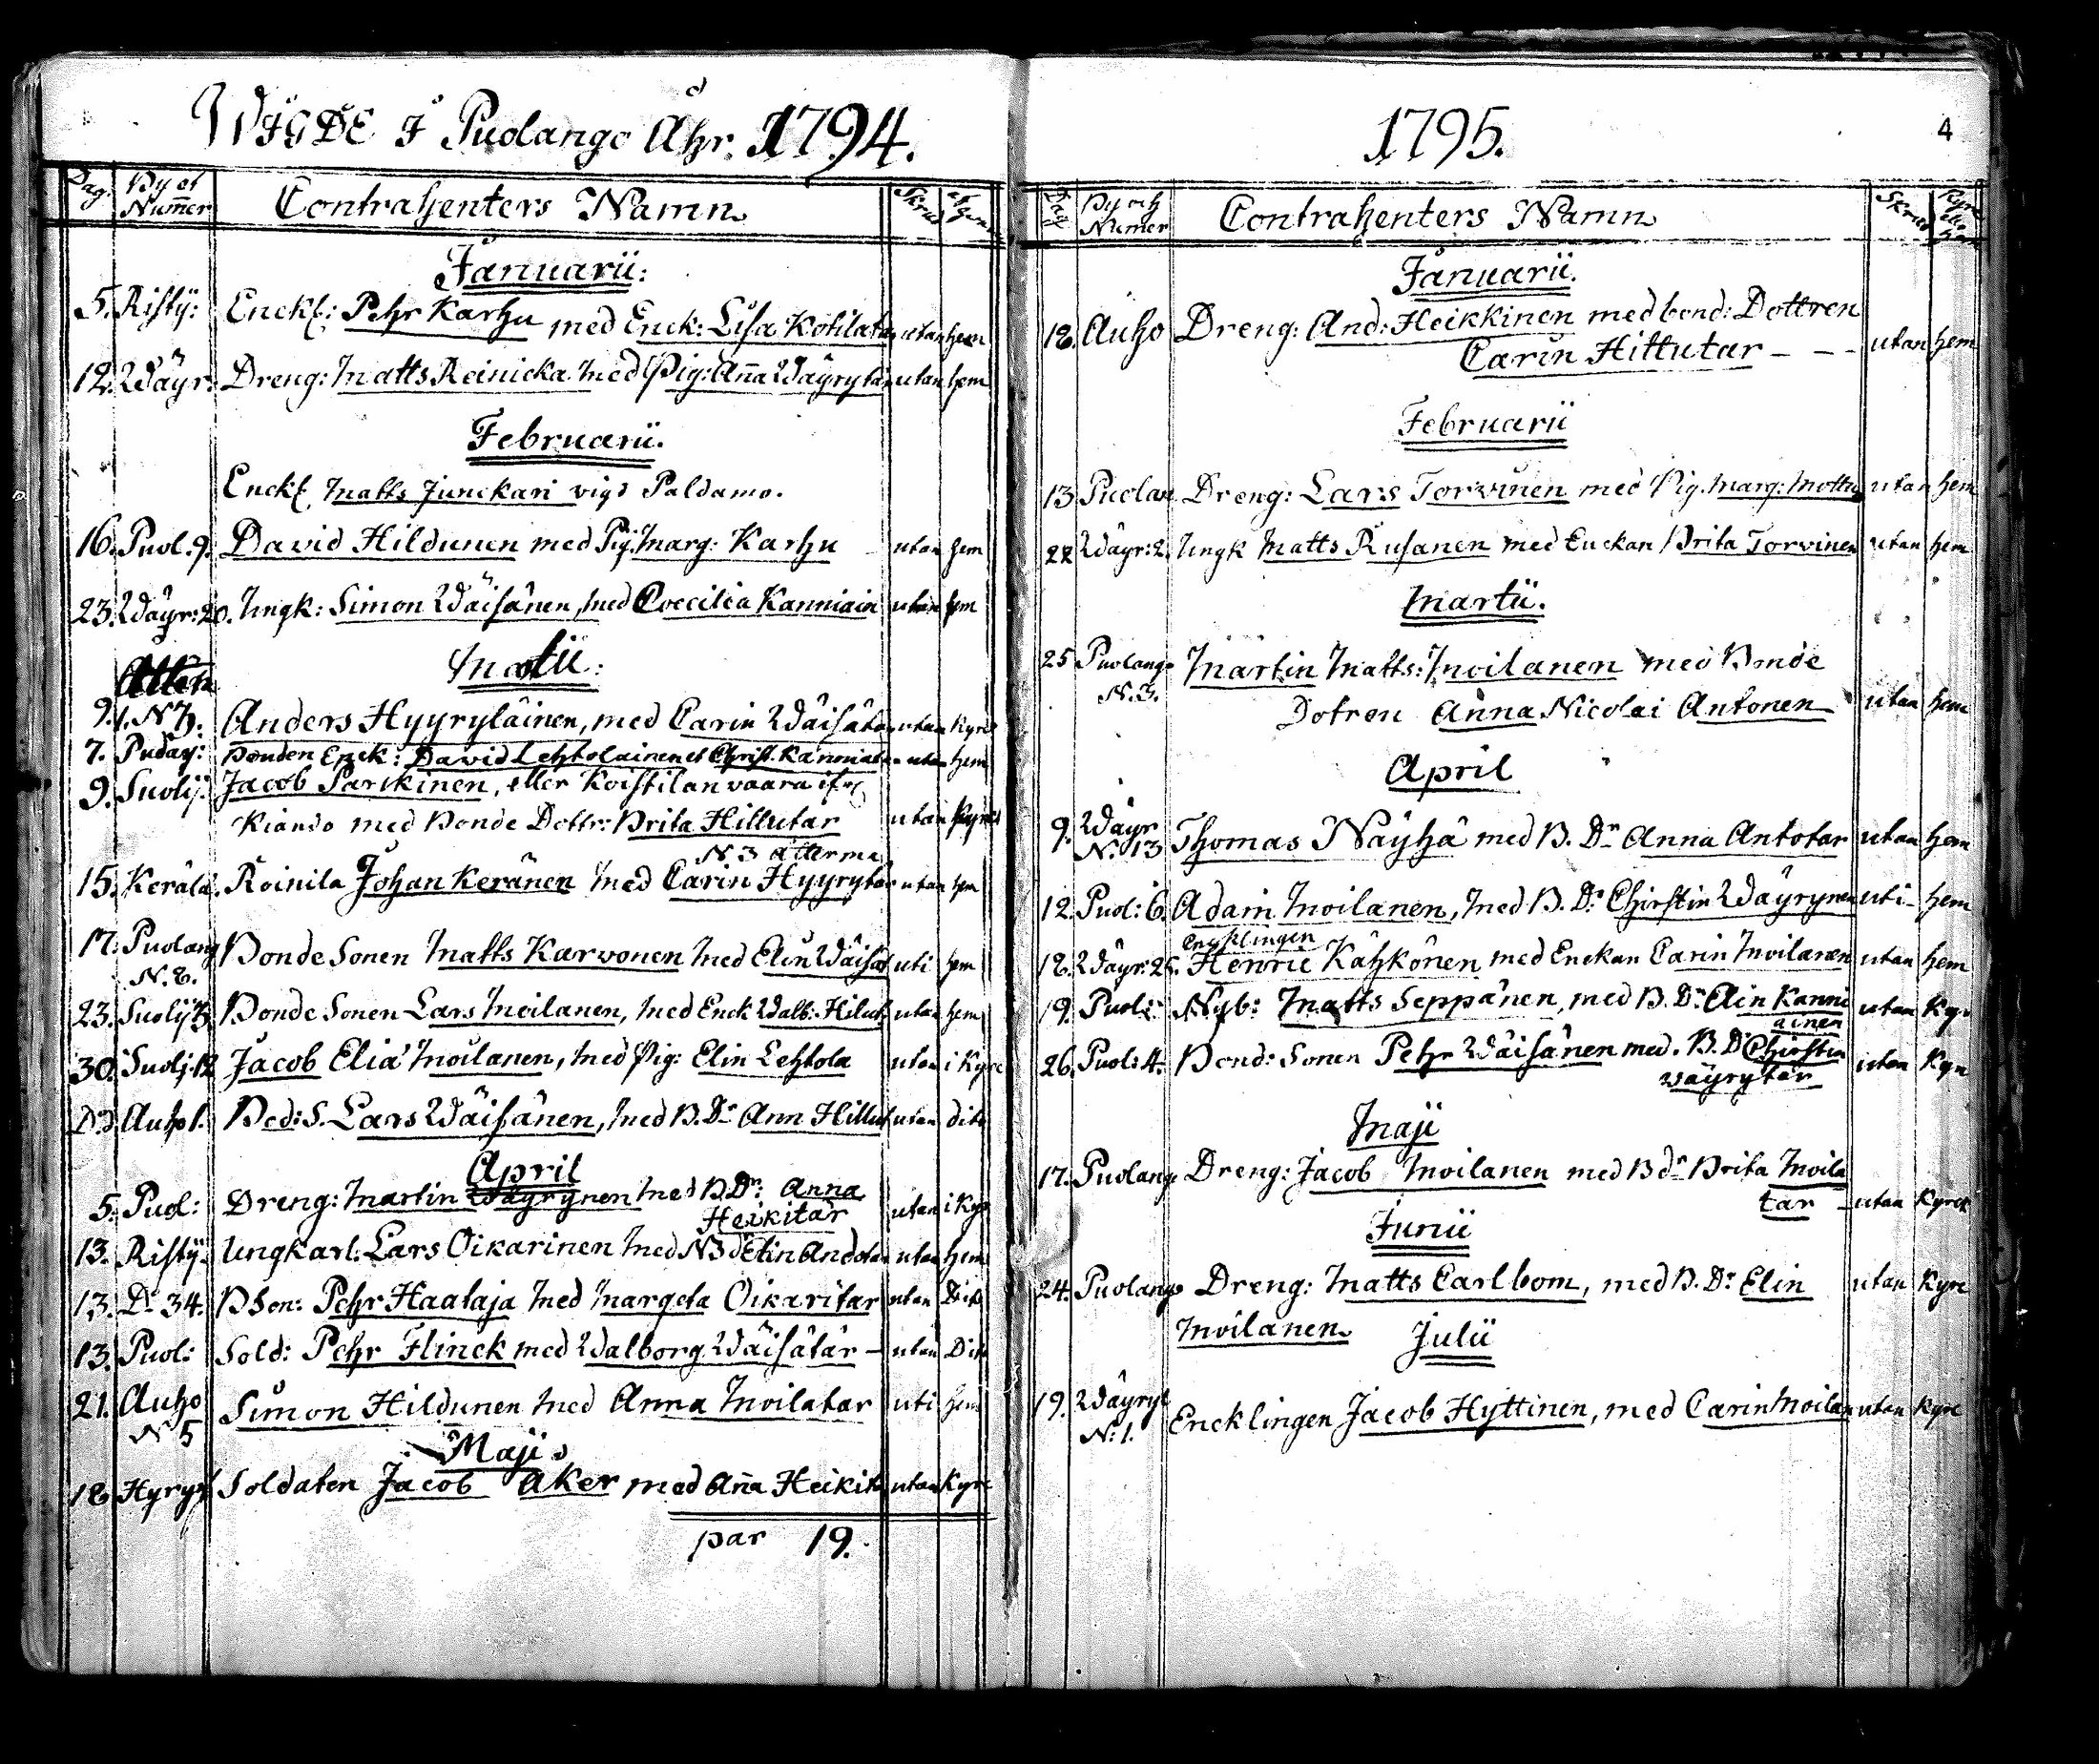 WIGDE I Puolango Åhr. 1794.
Dag. By et Num̄er Contrahenters Namn Skrud
Januarii:
5. Risty: Enckl: Pehr Karhu med Enck: Lisa Kotilatar utan hem
12. Wäyr: Dreng: Matts Reinicka med Pig: An̄a Wäyrytar utan hem
Februarii.
Enckl. Matts Junckari vigd Paldamo.
16. Puol. 9. David Hildunen med Pig. Marg: Karhu utan hem
23. Wäyr: 20. Ungk: Simon Wäisänen, med Coecilia Kanniain utan hem
Martii:
9. N 7. Anders Hyyryläinen, med Carin Wäisätar utan Kyrc
7. Puday: Bonden Enck: David Lehtolainen et Christ. Kanniatar utan hem
9. Suolij: Jacob Parckinen, eller Koistilanvaara ifrå
Kiando med Bonde Dottr: Brita Hillutar utan Kyrc
N. 3 Atterma
15. Kerälä. Roinila Johan Keränen med Carin Hyyrytär utan hem
17. Puolang N. 8. Bonde Sonen Matts Karvonen med Elin Wäisät uti hem
23. Suolij 3 Bonde Sonen Lars Moilanen, med Enck Walb: Hilut utan hem
30. Suolj: 12 Jacob Elia Moilanen, med Pig: Elin Lehtola utan i Kyrc
Do Auho 1. Bod: S. Lars Wäisänen, med B. Dr Ann Hillut utan dito
April
5. Puol: Dreng: Martin Wäyrynen med B. Dr: Anna utan i Kyr
Heikitär
13. Risty. Ungkarl: Lars Oikarinen med B d Elin Andotar utan hem
13. Do 34. B Son: Pehr Haataja med Margeta Oikaritar utan Dito
13. Puol: Sold: Pehr Flinck med Walborg Wäisätär - utan Dito
21. Auho N 5 Simon Hildunen med Anna Moilatar uti hem
Maji
18 Hyryf Soldaten Jacob Aker med An̄a Heikit utan Kyrc
par 19.
1795.
4
Dag By och Numer Contrahenters Namn Skrud Kyrc ell. hem
Januarii.
18. Auho Dreng: And: Heikkinen med bond: Dottren
Carin Hittutar - - - utan hem
Februarii
13 Puolan Dreng: Lars Torvinen med Pig. Marg: Mottu utan hem
22 Wäyr: 2. Ungk Matts Rusanen med Enckan Brita Torvinen utan hem
Martii.
25 Puolango Mårtin Matts: Moilanen med Bonde
N. 3. Dotren Anna Nicolai Antonen utan hem
April
9. Wäyr N. 13 Thomas Näyhä med B. Dr Anna Antotar utan hem
12. Puol: 6. Adam Moilanen, med B. Dr Christin Wäyrynen uti - hem
Encklingen
18. Wäyr: 25. Henric Kähkönen med Enckan Carin Moilanen utan hem
19. Puol: Nyb: Matts Seppänen, med B. Dr Ain Kanni utan Kyr
ainen
26. Puol: 4. Bond: Sonen Pehr Wäisänen med. B. Dr Christin utan Kyr
Väyrytär
Maji
17. Puolango Dreng: Jacob Moilanen med B dr Brita Moila
tar - utan Kyrck
Junii
24. Puolango Dreng: Matts Carlbom, med B. Dr Elin utan Kyrc
Moilanen.
Julii
19. Wäyryl N: 1. Encklingen Jacob Hyttinen, med Carin Moilan utan Kyrc